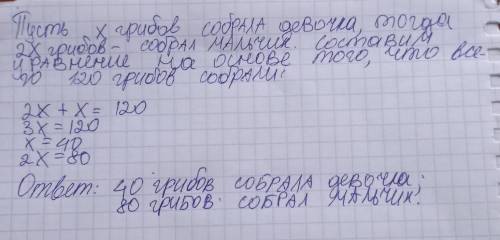 Пусть x грибов собрала девочка, тогда
2x грибов - собрал мальчик. Составим
уравнение на основе того, что все-
го 120 грибов собрали:
2x + x = 120
3x = 120
x = 40
2x = 80
Ответ: 40 грибов собрала девочка;
80 грибов собрал мальчик.